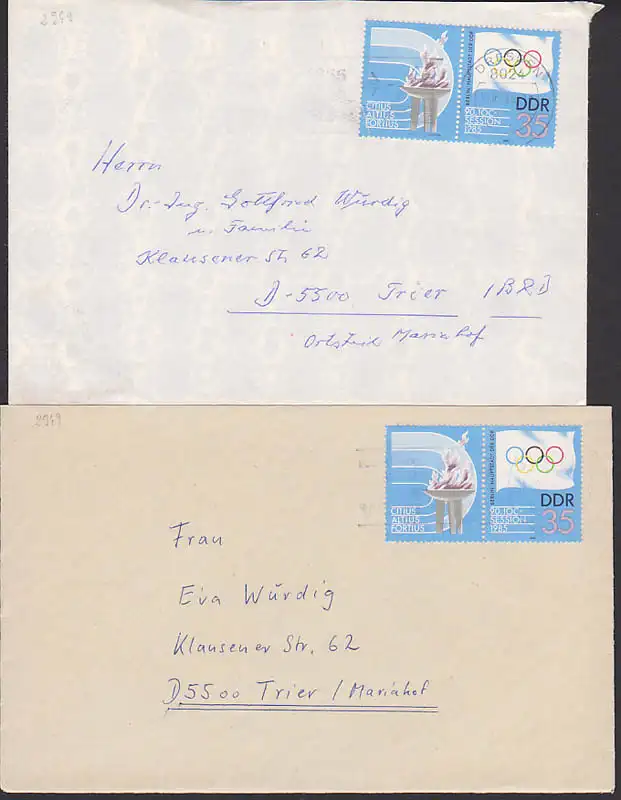 2949
CITIUS
ALTIUS
FORTIUS
BERLIN, HAUPTSTADT DER DDR
90. IOC-
SESSION
1985
DDR
35
DRESDEN
8024
Herrn
Dr.-Ing. Gottfried Würdig
u. Familie
Klausener Str. 62
D-5500 Trier (BRD
Ortsteil Mariahof
2949
CITIUS
ALTIUS
FORTIUS
BERLIN, HAUPTSTADT DER DDR
90. IOC-
SESSION
1985
DDR
35
Frau
Eva Würdig
Klausener Str. 62
D5500 Trier / Mariahof